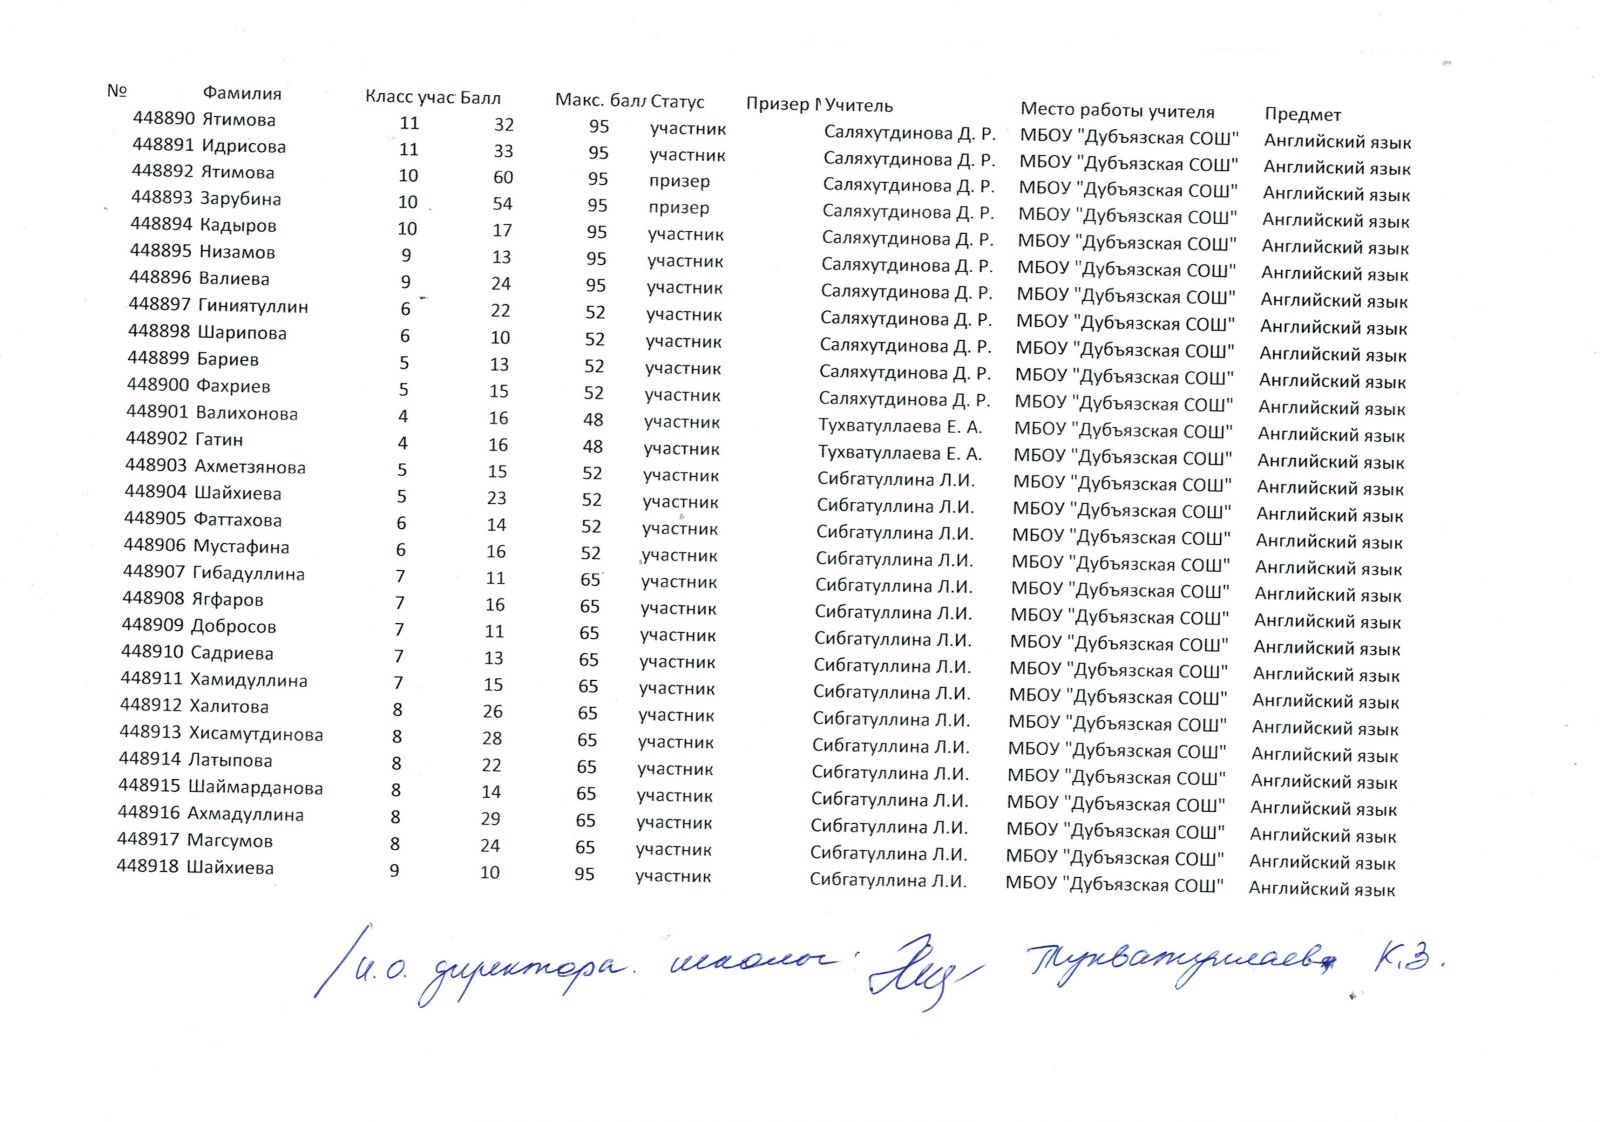 № Фамилия Класс учас Балл Макс. балл Статус Призер Учитель Место работы учителя Предмет
448890 Ятимова 11 32 95 участник Саляхутдинова Д. Р. МБОУ "Дубъязская СОШ" Английский язык
448891 Идрисова 11 33 95 участник Саляхутдинова Д. Р. МБОУ "Дубъязская СОШ" Английский язык
448892 Ятимова 10 60 95 призер Саляхутдинова Д. Р. МБОУ "Дубъязская СОШ" Английский язык
448893 Зарубина 10 54 95 призер Саляхутдинова Д. Р. МБОУ "Дубъязская СОШ" Английский язык
448894 Кадыров 10 17 95 участник Саляхутдинова Д. Р. МБОУ "Дубъязская СОШ" Английский язык
448895 Низамов 9 13 95 участник Саляхутдинова Д. Р. МБОУ "Дубъязская СОШ" Английский язык
448896 Валиева 9 24 95 участник Саляхутдинова Д. Р. МБОУ "Дубъязская СОШ" Английский язык
448897 Гиниятуллин 6 22 52 участник Саляхутдинова Д. Р. МБОУ "Дубъязская СОШ" Английский язык
448898 Шарипова 6 10 52 участник Саляхутдинова Д. Р. МБОУ "Дубъязская СОШ" Английский язык
448899 Бариев 5 13 52 участник Саляхутдинова Д. Р. МБОУ "Дубъязская СОШ" Английский язык
448900 Фахриев 5 15 52 участник Саляхутдинова Д. Р. МБОУ "Дубъязская СОШ" Английский язык
448901 Валихонова 4 16 48 участник Тухватуллаева Е. А. МБОУ "Дубъязская СОШ" Английский язык
448902 Гатин 4 16 48 участник Тухватуллаева Е. А. МБОУ "Дубъязская СОШ" Английский язык
448903 Ахметзянова 5 15 52 участник Сибгатуллина Л.И. МБОУ "Дубъязская СОШ" Английский язык
448904 Шайхиева 5 23 52 участник Сибгатуллина Л.И. МБОУ "Дубъязская СОШ" Английский язык
448905 Фаттахова 6 14 52 участник Сибгатуллина Л.И. МБОУ "Дубъязская СОШ" Английский язык
448906 Мустафина 6 16 52 участник Сибгатуллина Л.И. МБОУ "Дубъязская СОШ" Английский язык
448907 Гибадуллина 7 11 65 участник Сибгатуллина Л.И. МБОУ "Дубъязская СОШ" Английский язык
448908 Ягфаров 7 16 65 участник Сибгатуллина Л.И. МБОУ "Дубъязская СОШ" Английский язык
448909 Добросов 7 11 65 участник Сибгатуллина Л.И. МБОУ "Дубъязская СОШ" Английский язык
448910 Садриева 7 13 65 участник Сибгатуллина Л.И. МБОУ "Дубъязская СОШ" Английский язык
448911 Хамидуллина 7 15 65 участник Сибгатуллина Л.И. МБОУ "Дубъязская СОШ" Английский язык
448912 Халитова 8 26 65 участник Сибгатуллина Л.И. МБОУ "Дубъязская СОШ" Английский язык
448913 Хисамутдинова 8 28 65 участник Сибгатуллина Л.И. МБОУ "Дубъязская СОШ" Английский язык
448914 Латыпова 8 22 65 участник Сибгатуллина Л.И. МБОУ "Дубъязская СОШ" Английский язык
448915 Шаймарданова 8 14 65 участник Сибгатуллина Л.И. МБОУ "Дубъязская СОШ" Английский язык
448916 Ахмадуллина 8 29 65 участник Сибгатуллина Л.И. МБОУ "Дубъязская СОШ" Английский язык
448917 Магсумов 8 24 65 участник Сибгатуллина Л.И. МБОУ "Дубъязская СОШ" Английский язык
448918 Шайхиева 9 10 95 участник Сибгатуллина Л.И. МБОУ "Дубъязская СОШ" Английский язык
/и.о. директора школы: Тухватуллаева К.З.